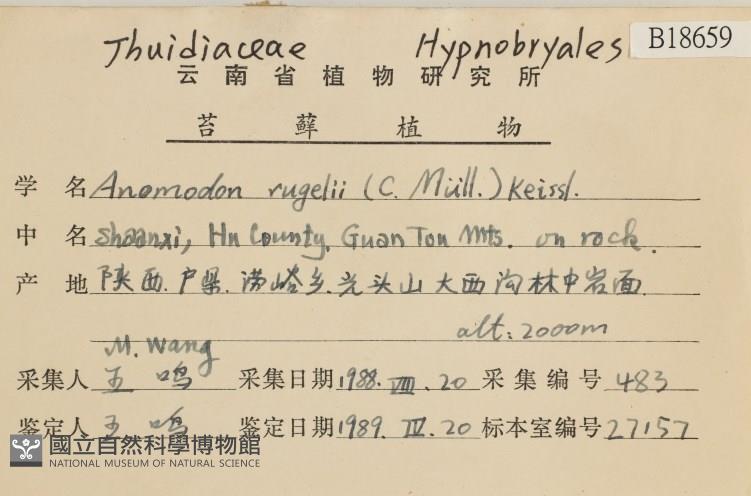 Thuidiaceae Hypnobryales B18659
云南省植物研究所
苔藓植物
学名 Anomodon rugelii (C. Müll.) Keissl.
中名 Shaanxi, Hu County, Guan Tou Mts. on rock.
产地 陕西.户县.涝峪乡.光头山大西沟林中岩面
alt: 2000m
M. Wang
采集人 王鸣 采集日期 1988.VIII.20 采集编号 483
鉴定人 王鸣 鉴定日期 1989.IV.20 标本室编号 27157
國立自然科學博物館
NATIONAL MUSEUM OF NATURAL SCIENCE